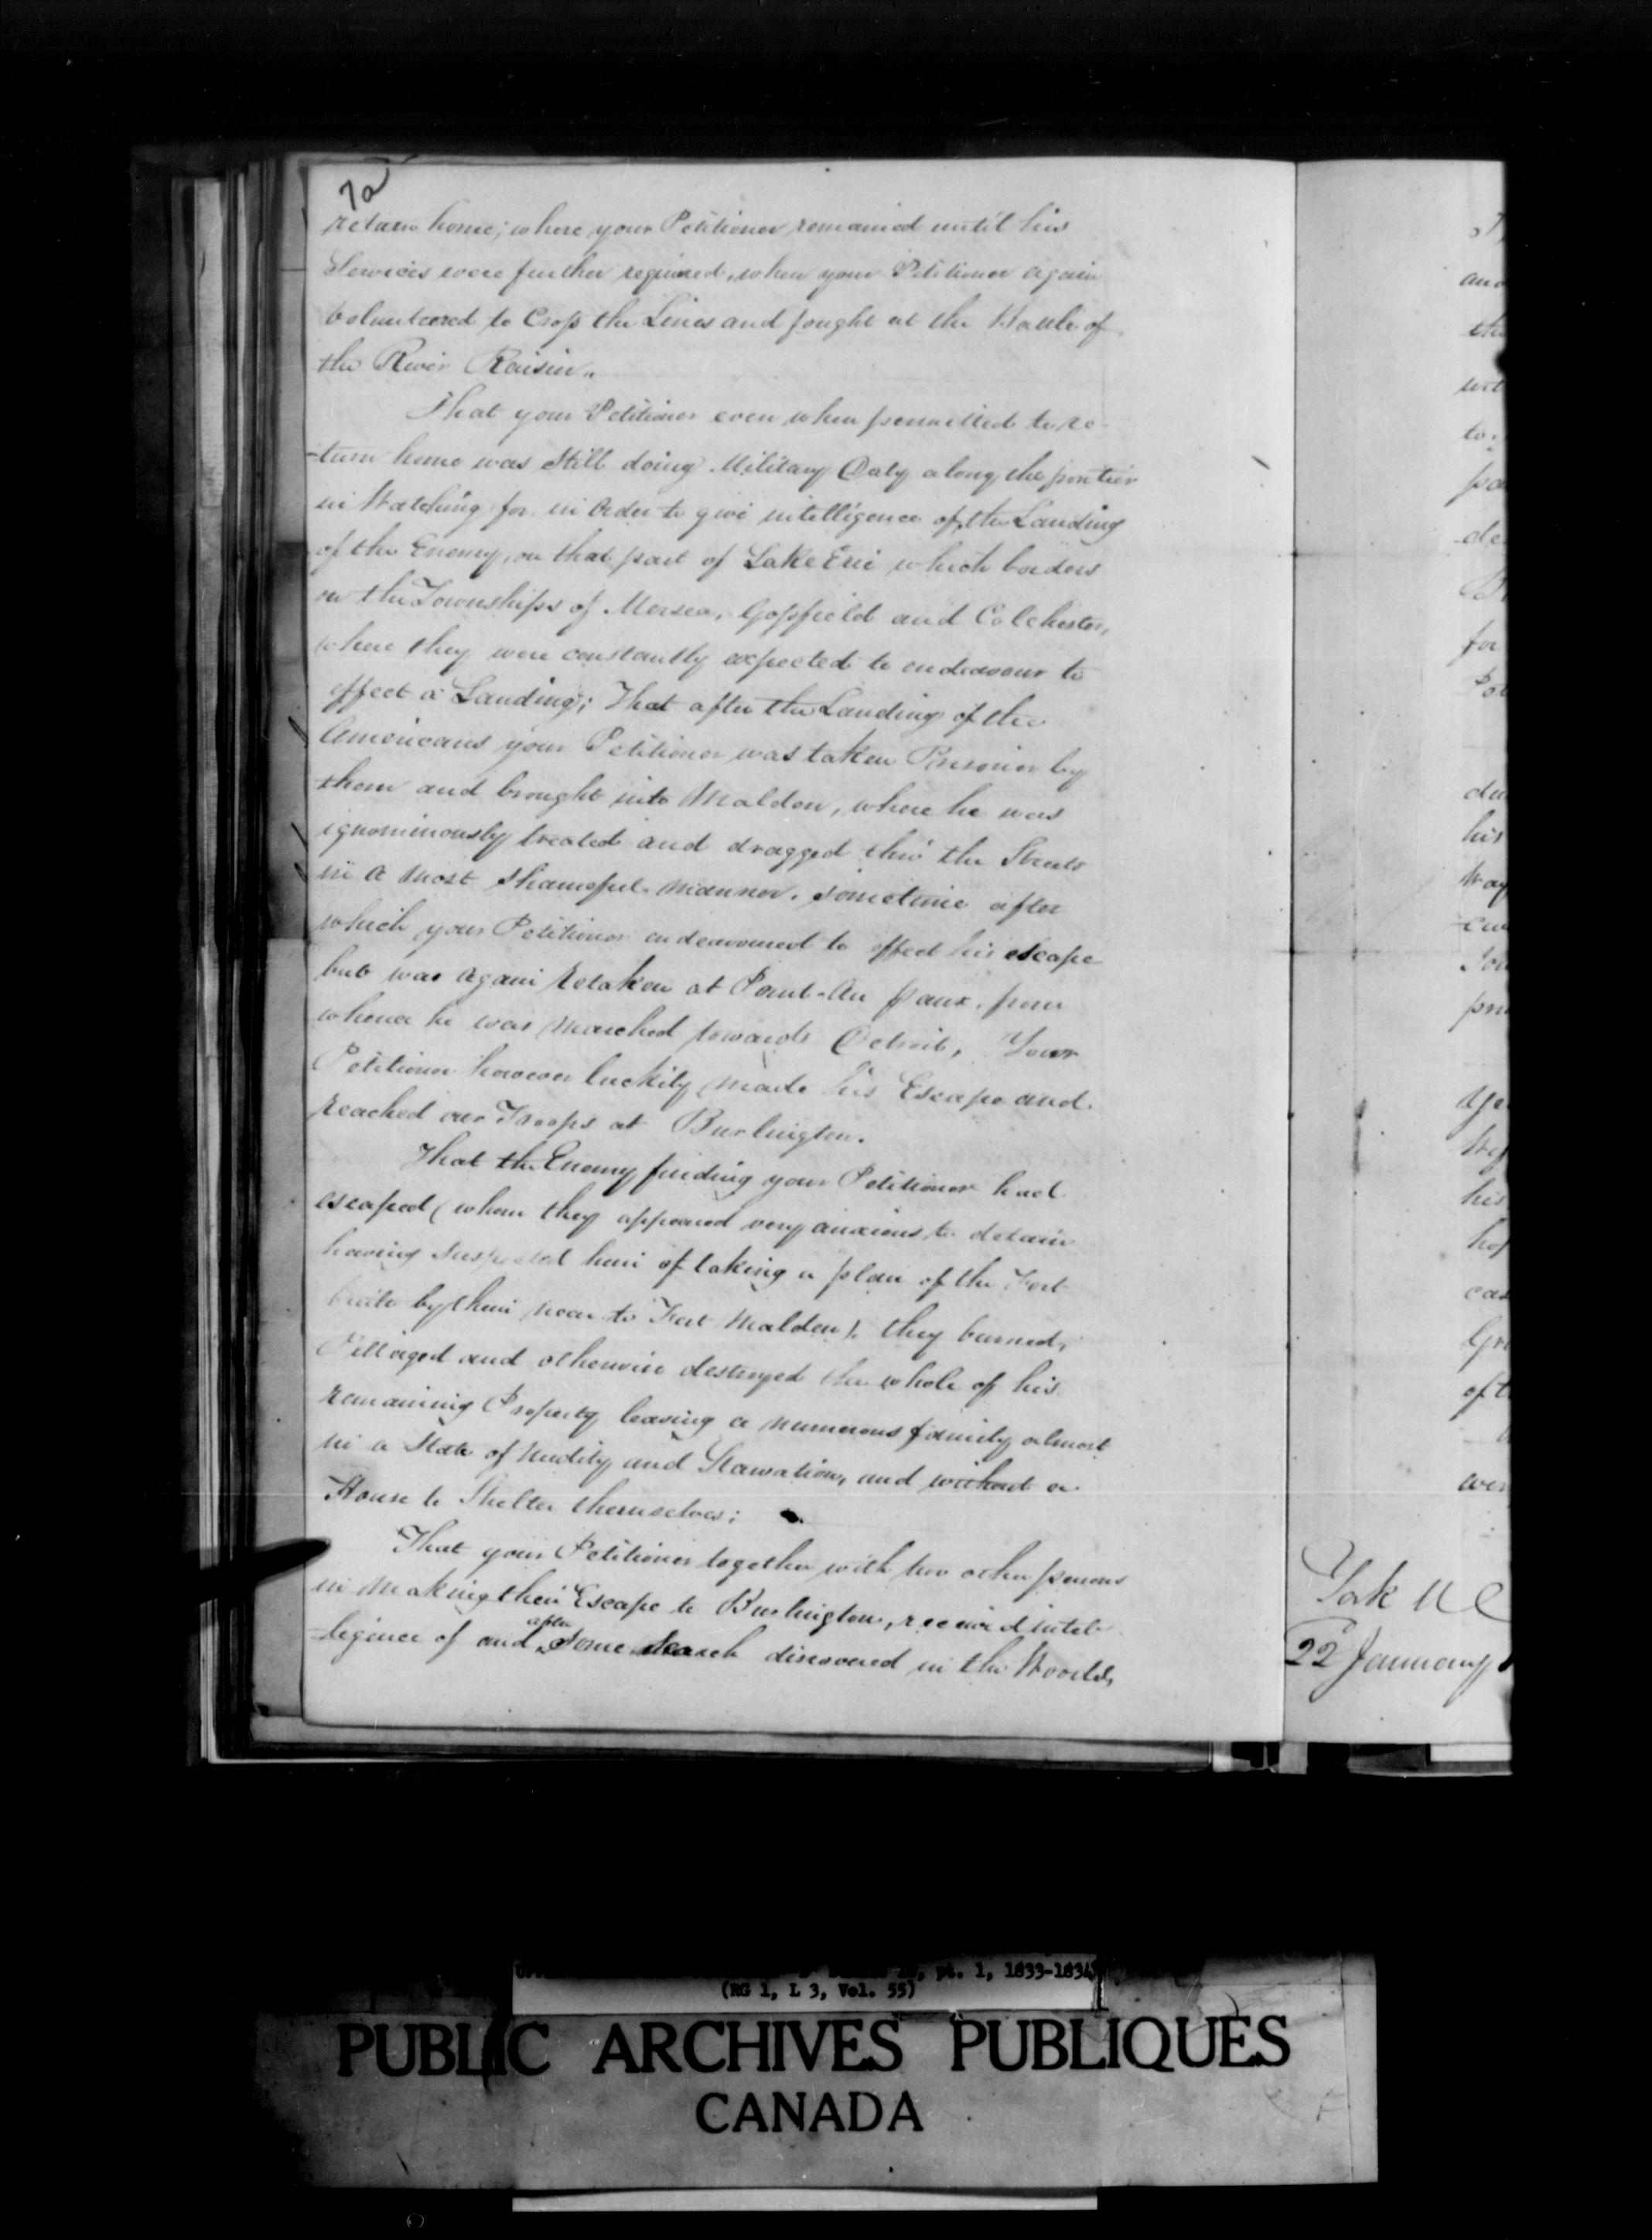 7a
return home; where your Petitioner remained until his
Services were further required, when your Petitioner again
Volunteered to Cross the Lines and fought at the Battle of
the River Raisin.
That your Petitioner even when permitted to re-
-turn home was Still doing Military Duty along the frontier
in Watching for in Order to give intelligence of the Landing
of the Enemy, on that part of Lake Erie which borders
on the Townships of Mersea, Gosfield and Colchester,
where they were constantly expected to endeavour to
effect a Landing; That after the Landing of the
Americans your Petitioner was taken Prisoner by
them and brought into Malden, where he was
ignominously treated and dragged thro' the Streets
in a Most Shameful Manner. Sometime after
which your Petitioner endeavoured to effect his escape
but was again Retaken at Point-Au paux, from
whence he was Marched towards Detroit, Your
Petitioner however luckily Made his Escape and
reached our Troops at Burlington.
That the Enemy finding your Petitioner had
escaped (whom they appeared very anxious to detain
having Suspected him of taking a plan of the Fort
built by them near to Fort Malden). they burned,
Pillaged and otherwise destroyed the whole of his
remaining Property leaving a numerous family almost
in a State of Nudity and Starvation, and without a
House to Shelter themselves;
That your Petitioner together with two other persons
in Making their Escape to Burlington, received intel-
-ligence of and after Some Search discovered in the Woods,
and
the
to
pa
de
for
his
Way
his
cas
of t
York U C
22 January
pt. 1, 1833-1834
(RG 1, L 3, Vol. 55)
PUBLIC ARCHIVES PUBLIQUES
CANADA